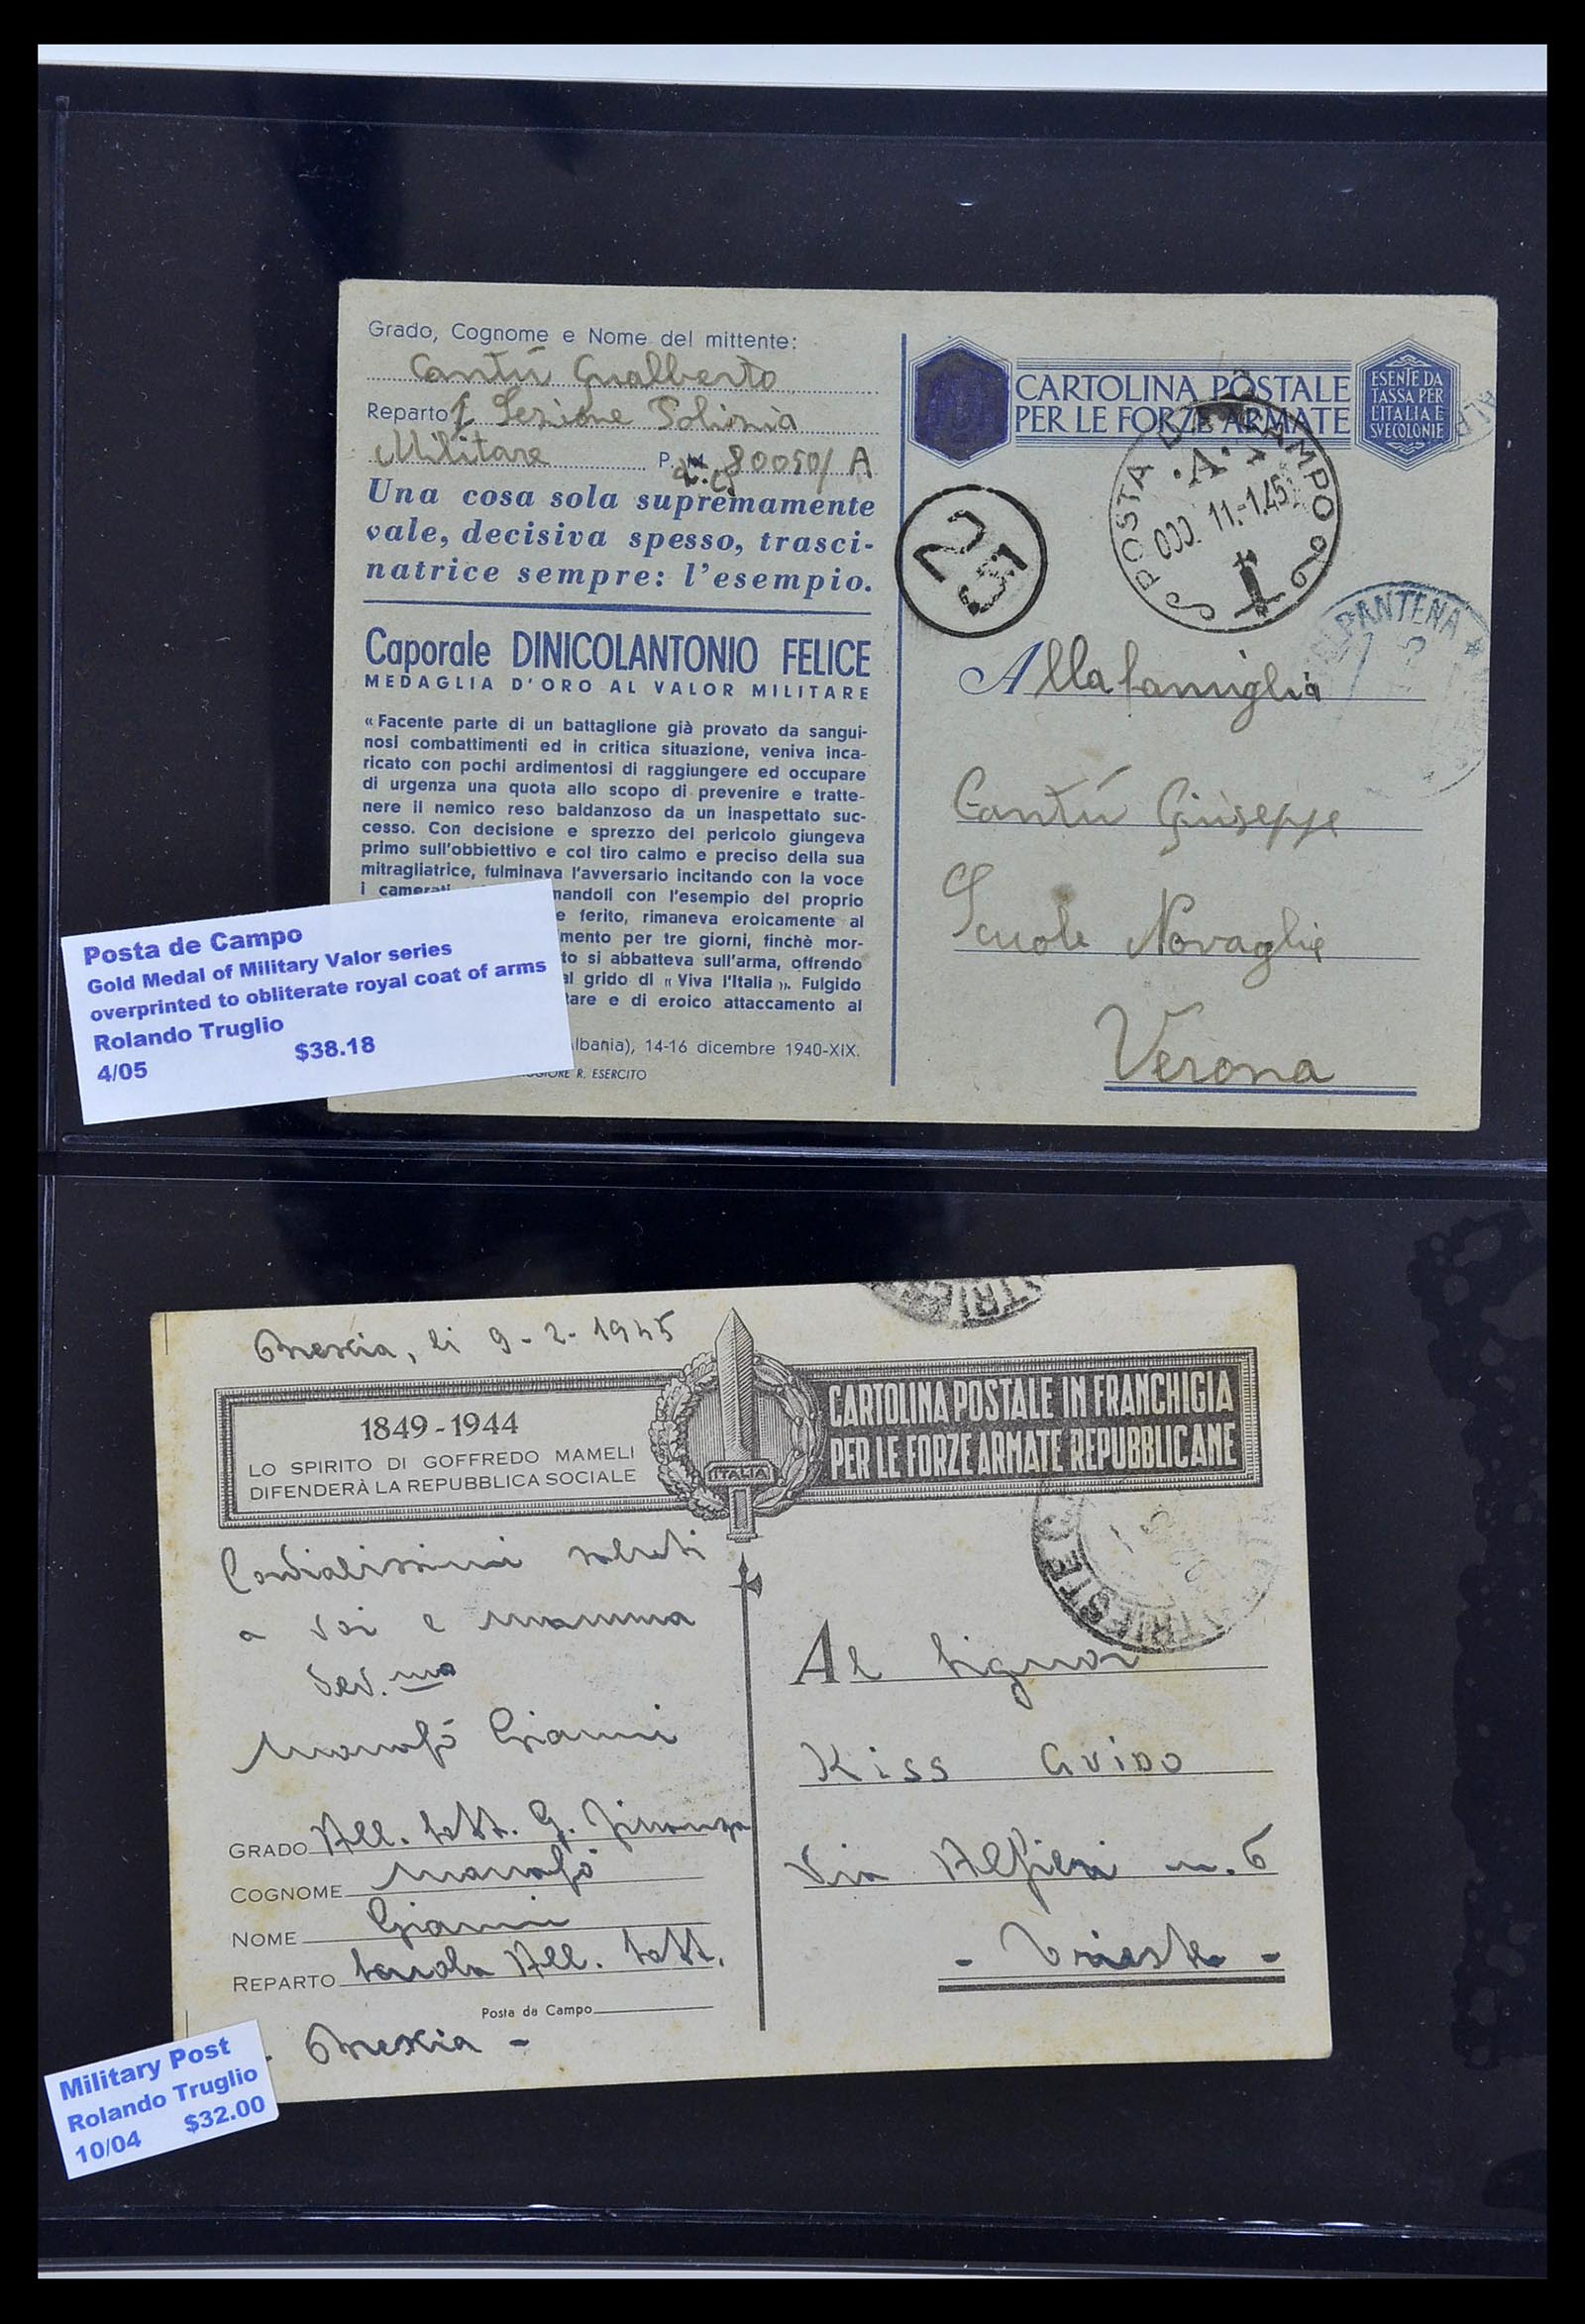 Grado, Cognome e Nome del mittente:
Cantù Gualberto
Reparto 1 Sezione Polizia
Militare P. 80050/A
Una cosa sola supremamente
vale, decisiva spesso, trasci-
natrice sempre: l'esempio.
Caporale DINICOLANTONIO FELICE
MEDAGLIA D'ORO AL VALOR MILITARE
« Facente parte di un battaglione già provato da sangui-
nosi combattimenti ed in critica situazione, veniva inca-
ricato con pochi ardimentosi di raggiungere ed occupare
di urgenza una quota allo scopo di prevenire e tratte-
nere il nemico reso baldanzoso da un inaspettato suc-
cesso. Con decisione e sprezzo del pericolo giungeva
primo sull'obbiettivo e col tiro calmo e preciso della sua
mitragliatrice, fulminava l'avversario incitando con la voce
i camerati mandoli con l'esempio del proprio
e ferito, rimaneva eroicamente al
mento per tre giorni, finchè mor-
to si abbatteva sull'arma, offrendo
al grido di « Viva l'Italia ». Fulgido
tare e di eroico attaccamento al
lbania), 14-16 dicembre 1940-XIX.
GIORE R. ESERCITO
CARTOLINA POSTALE
PER LE FORZE ARMATE
ESENTE DA
TASSA PER
L'ITALIA E
SUE COLONIE
POSTA DA CAMPO
·A·
11.-1.45
25
PANTENA
Alla famiglia
Cantù Giuseppe
Scuole Novaglie
Verona
Posta de Campo
Gold Medal of Military Valor series
overprinted to obliterate royal coat of arms
Rolando Truglio
4/05 $38.18
Brescia, li 9-2-1945
1849-1944
LO SPIRITO DI GOFFREDO MAMELI
DIFENDERÀ LA REPUBBLICA SOCIALE
ITALIA
CARTOLINA POSTALE IN FRANCHIGIA
PER LE FORZE ARMATE REPUBBLICANE
TRIESTE
Cordialissimi saluti
a voi e mamma
Dev.mo
Gianni
GRADO All. sott. G.
COGNOME
NOME Gianni
REPARTO Scuola All. Sott.
Posta da Campo
Brescia -
Al Signor
Kiss Guido
Via Alfieri n. 6
- Trieste -
Military Post
Rolando Truglio
10/04 $32.00